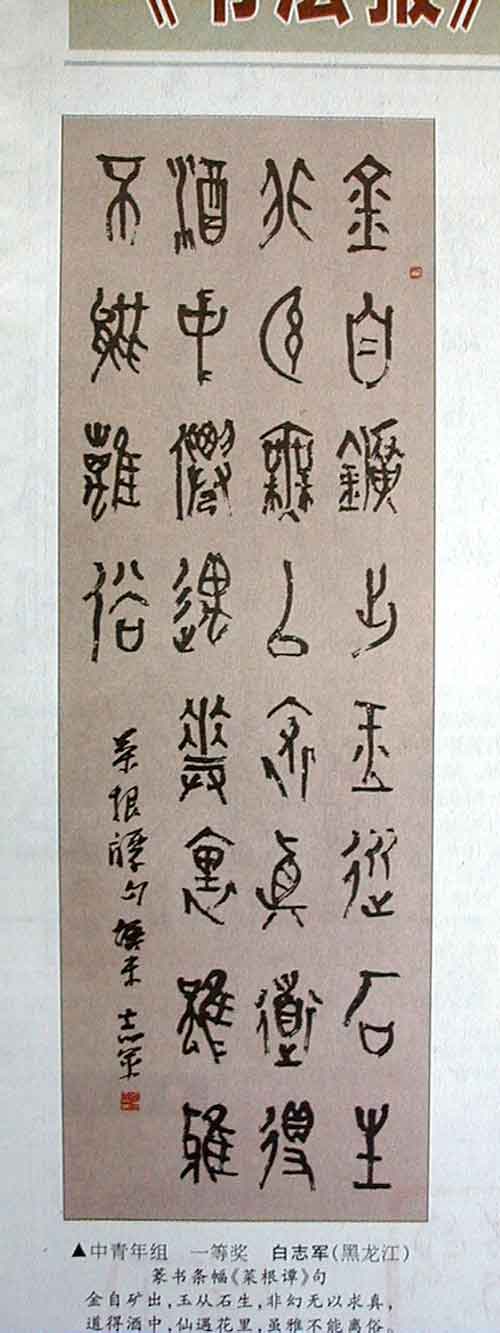 《书法报》
金自鑛出玉從石生
非幻無以求真道得
酒中僊遇華裏雖雅
不能離俗
菜根譚句癸未 志軍
▲中青年组 一等奖 白志军(黑龙江)
篆书条幅《菜根谭》句
金自矿出，玉从石生，非幻无以求真，
道得酒中，仙遇花里，虽雅不能离俗。